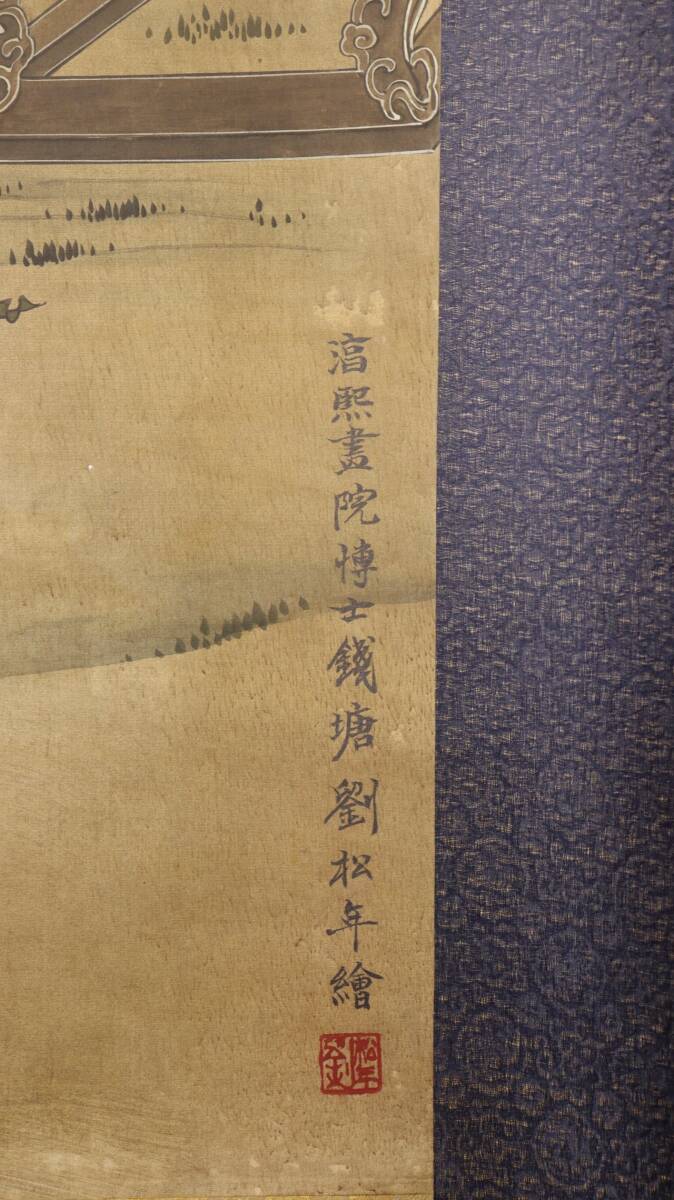 淳熙畫院博士錢塘劉松年繪